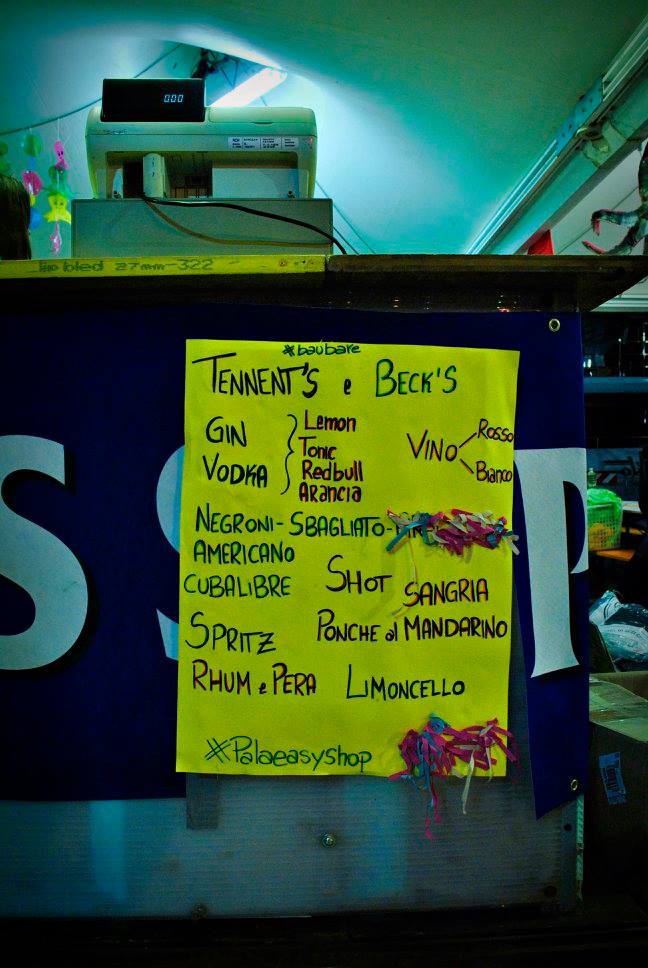 0.00
bled 27mm-322
#baubare
TENNENT'S e BECK'S
GIN
VODKA
Lemon
Tonic
Redbull
ARancia
VINO
Rosso
Bianco
NEGRONI - SBAGLIATO -
AMERICANO
CUBALIBRE
SHOT
SANGRIA
SPRITZ
PONCHE al MANDARINO
RHUM e PERA
LIMONCELLO
#Palaeasyshop
S S